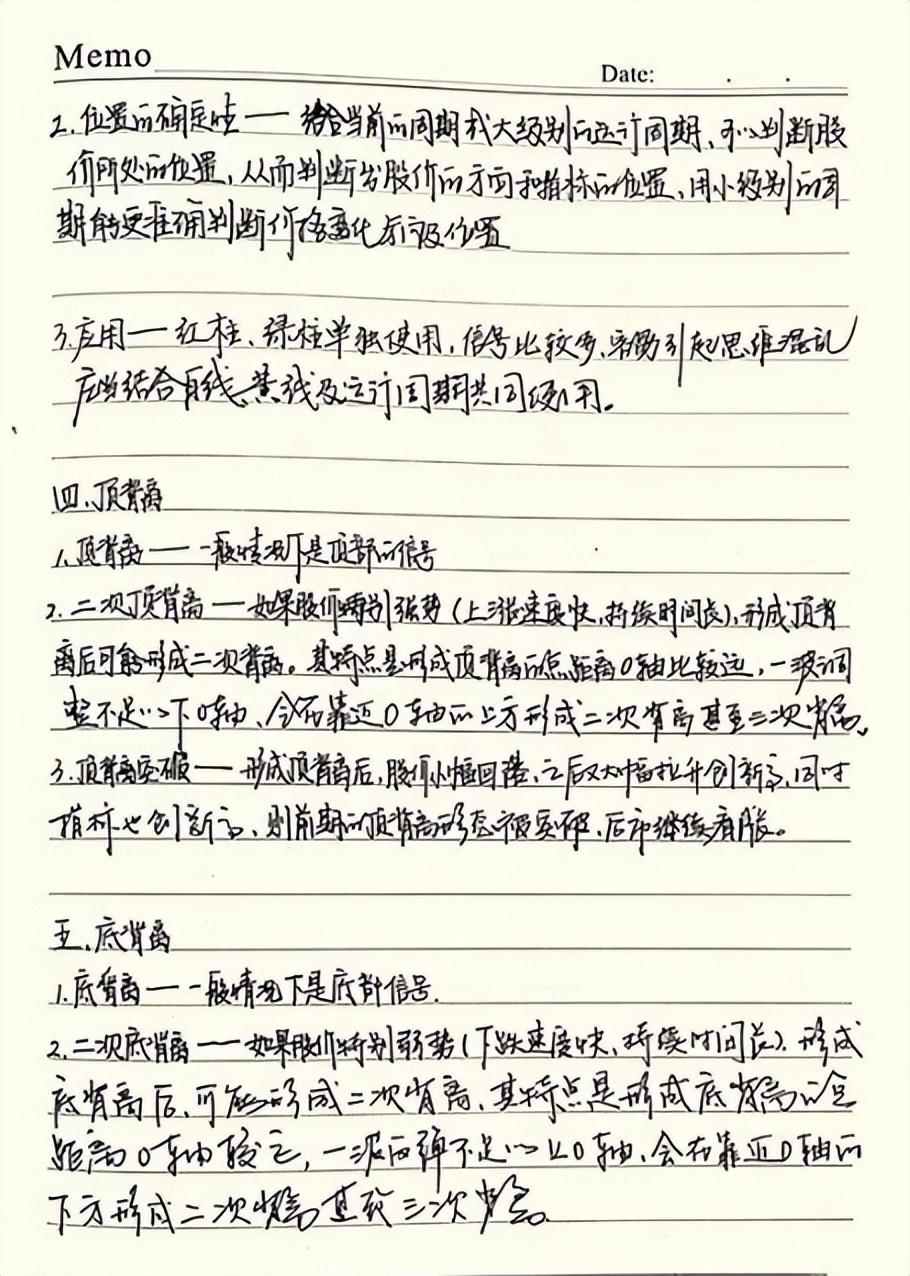 Memo
Date: . .
2.位置的确定性——结合当前的周期或大级别的运行周期、可以判断股
价所处的位置、从而判断出股价的方向和指标的位置、用小级别的周
期能更准确判断价格变化所处位置
3.应用——红柱、绿柱单独使用,信号比较多、容易引起思维混乱
应当结合白线、黄线及运行周期共同使用。
四、顶背离
1.顶背离——一般情况下是顶部的信号
2.二次顶背离——如果股价特别强势(上涨速度快,持续时间长),形成顶背
离后可能形成二次背离。其特点是形成顶背离的点距离0轴比较远,一波调
整不足以下0轴、会在靠近0轴的上方形成二次背离甚至三次背离、
3.顶背离突破——形成顶背离后,股价小幅回落、之后又大幅拉升创新高,同时
指标也创新高、则前期的顶背离形态被突破、后市继续看涨。
五、底背离
1.底背离——一般情况下是底部信号.
2.二次底背离——如果股价特别弱势(下跌速度快、持续时间长).形成
底背离后、可能形成二次背离、其特点是形成底背离的点
距离0轴较远,一波反弹不足以上0轴、会在靠近0轴的
下方形成二次背离甚至三次背离.